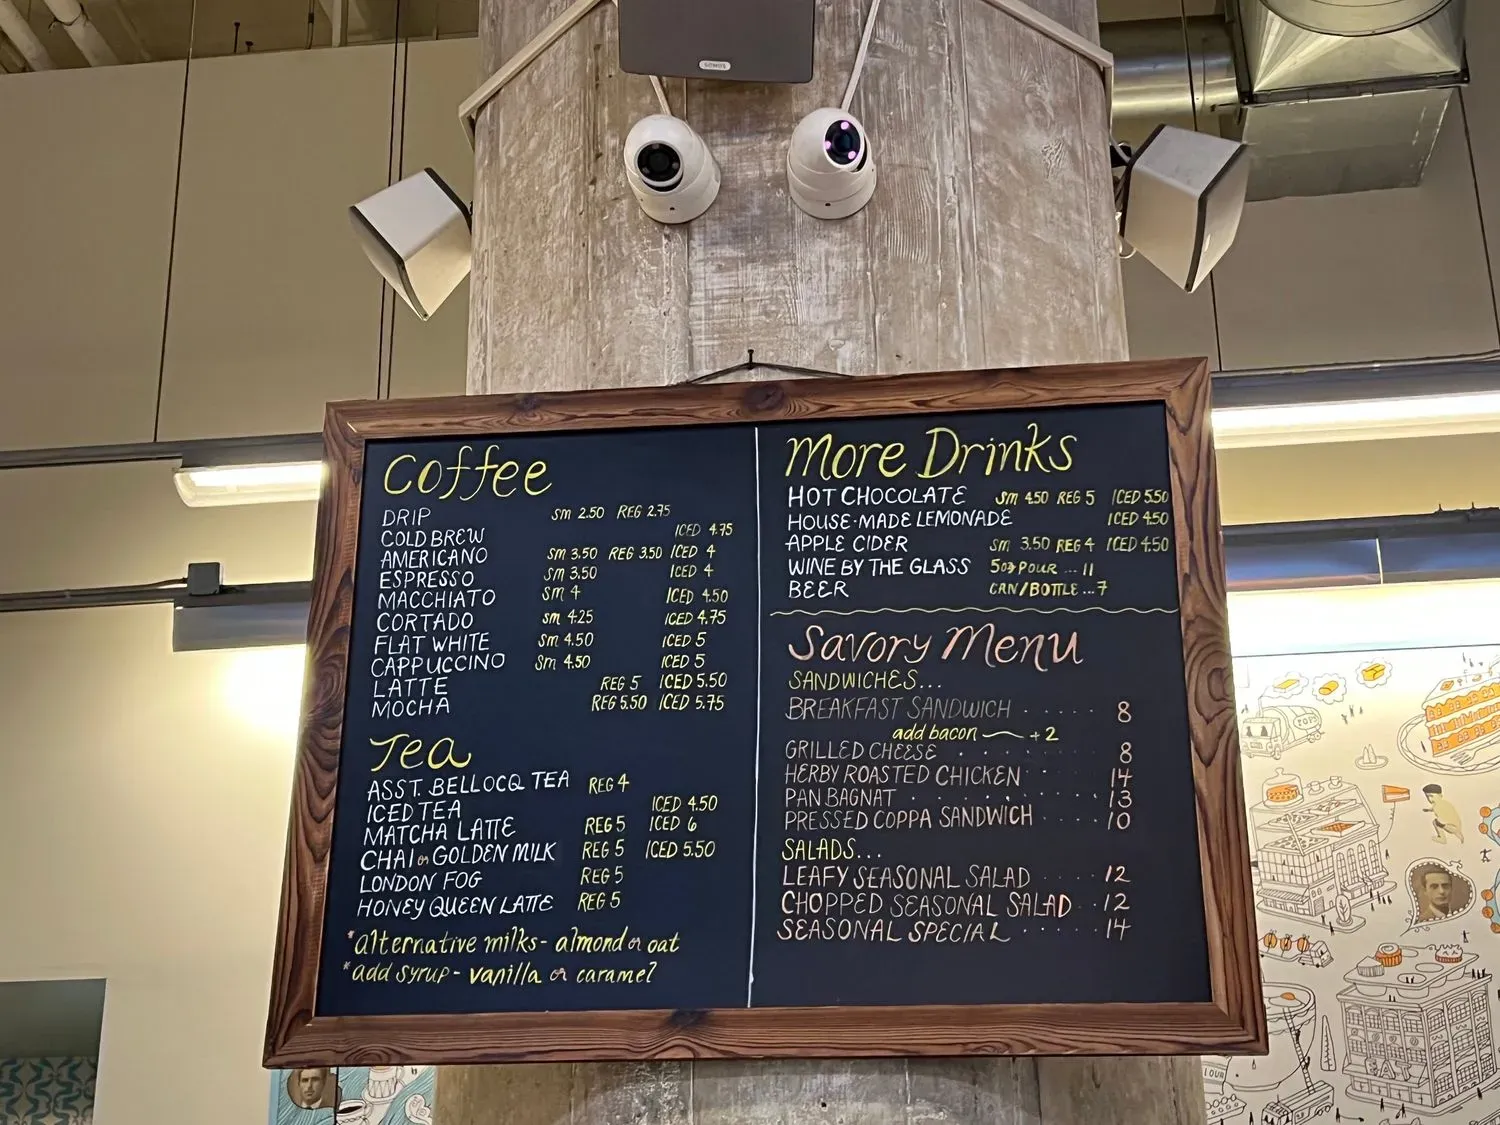 SONOS
Coffee
DRIP sm 2.50 REG 2.75
COLD BREW ICED 4.75
AMERICANO sm 3.50 REG 3.50 ICED 4
ESPRESSO sm 3.50 ICED 4
MACCHIATO sm 4 ICED 4.50
CORTADO sm 4.25 ICED 4.75
FLAT WHITE sm 4.50 ICED 5
CAPPUCCINO sm 4.50 ICED 5
LATTE REG 5 ICED 5.50
MOCHA REG 5.50 ICED 5.75
Tea
ASST. BELLOCQ TEA REG 4
ICED TEA ICED 4.50
MATCHA LATTE REG 5 ICED 6
CHAI or GOLDEN MILK REG 5 ICED 5.50
LONDON FOG REG 5
HONEY QUEEN LATTE REG 5
*alternative milks- almond or oat
*add syrup- vanilla or caramel
More Drinks
HOT CHOCOLATE sm 4.50 REG 5 ICED 5.50
HOUSE-MADE LEMONADE ICED 4.50
APPLE CIDER sm 3.50 REG 4 ICED 4.50
WINE BY THE GLASS 5oz POUR ... 11
BEER CAN/BOTTLE...7
Savory Menu
SANDWICHES...
BREAKFAST SANDWICH ..... 8
add bacon — +2
GRILLED CHEESE ..... 8
HERBY ROASTED CHICKEN .... 14
PAN BAGNAT ........ 13
PRESSED COPPA SANDWICH .... 10
SALADS...
LEAFY SEASONAL SALAD .... 12
CHOPPED SEASONAL SALAD .. 12
SEASONAL SPECIAL ..... 14